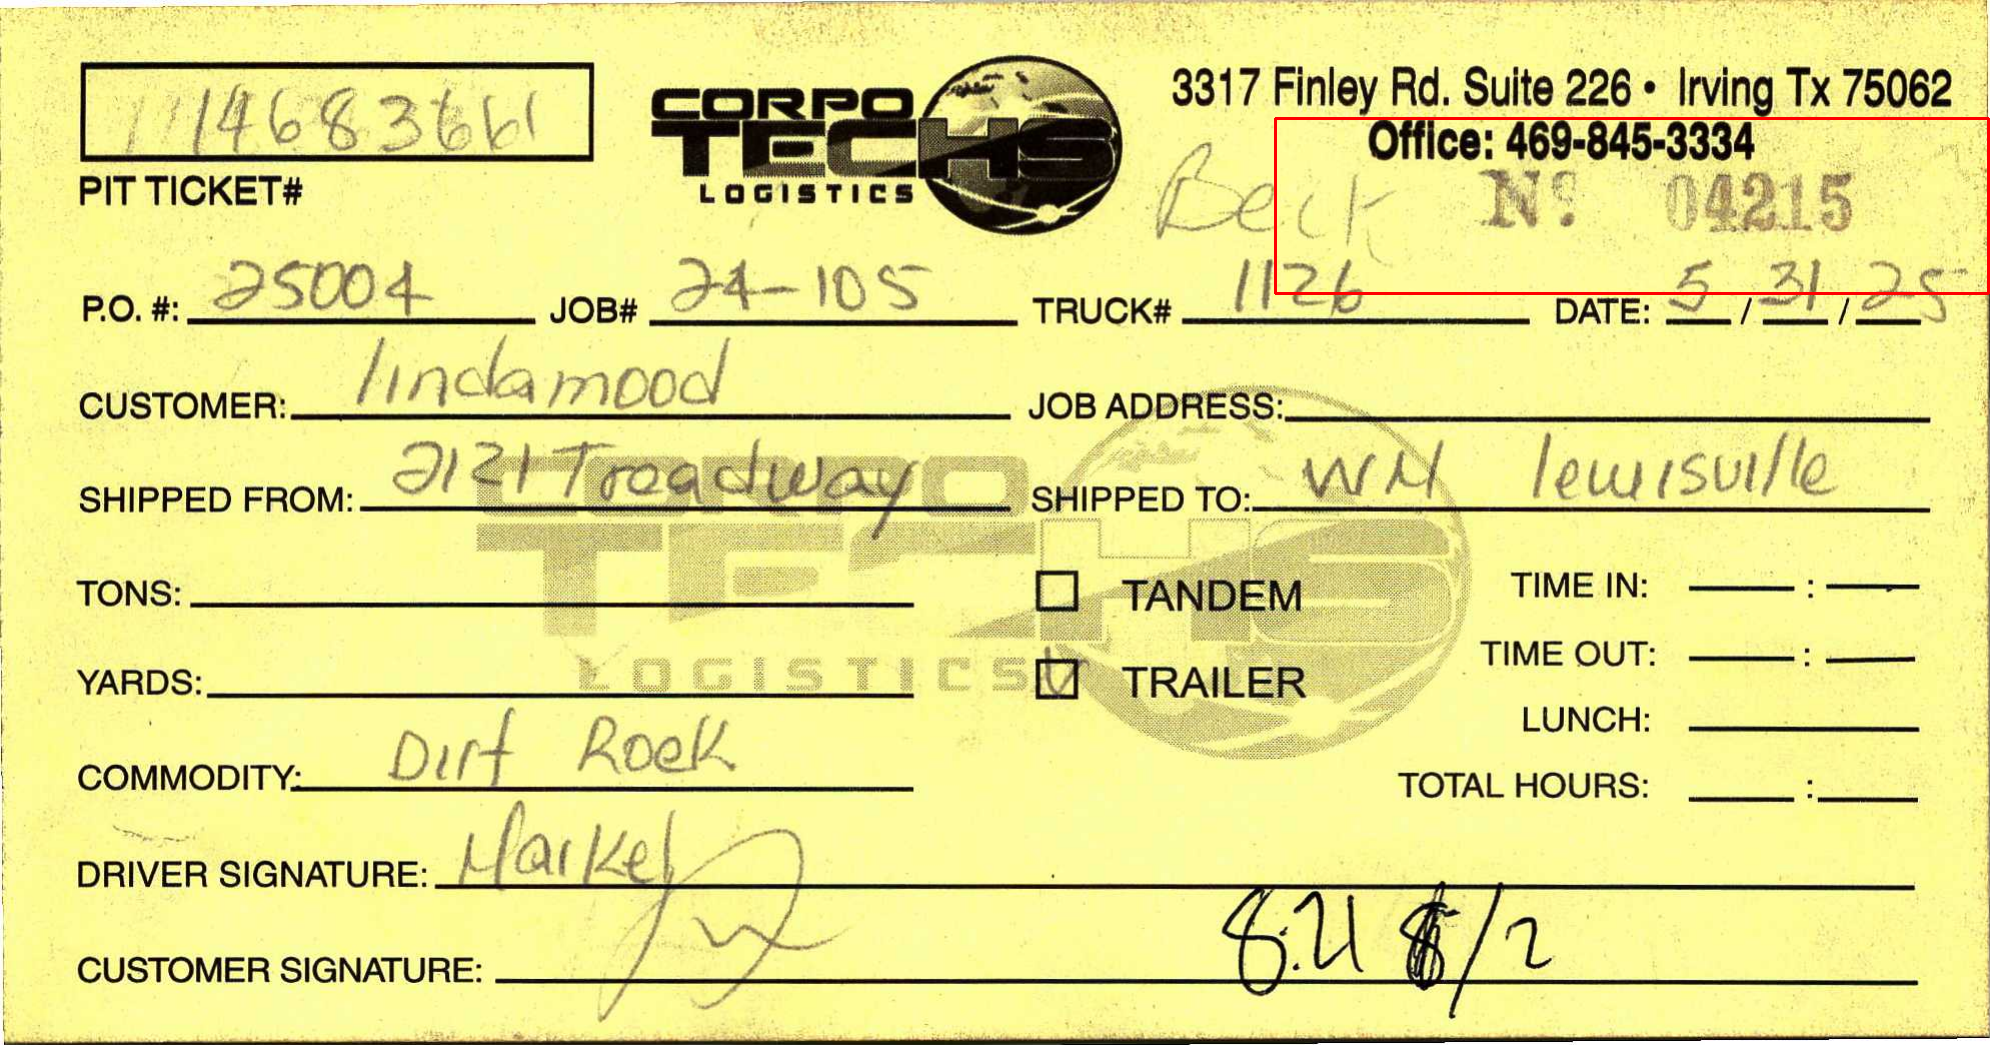 1114683661
PIT TICKET#
CORPO
TECHS
LOGISTICS
3317 Finley Rd. Suite 226 • Irving Tx 75062
Office: 469-845-3334
Beck
Nº 04215
P.O. #: 25004 JOB# 24-105 TRUCK# 1126 DATE: 5 / 31 / 25
CUSTOMER: lindamood JOB ADDRESS:
SHIPPED FROM: 2121 Treadway SHIPPED TO: WM lewisville
CORPO
TECHS
LOGISTICS
TONS: TANDEM TIME IN: :
TIME OUT: :
YARDS: TRAILER
LUNCH:
COMMODITY: Dirt Rock
TOTAL HOURS: :
DRIVER SIGNATURE: Markel
CUSTOMER SIGNATURE: